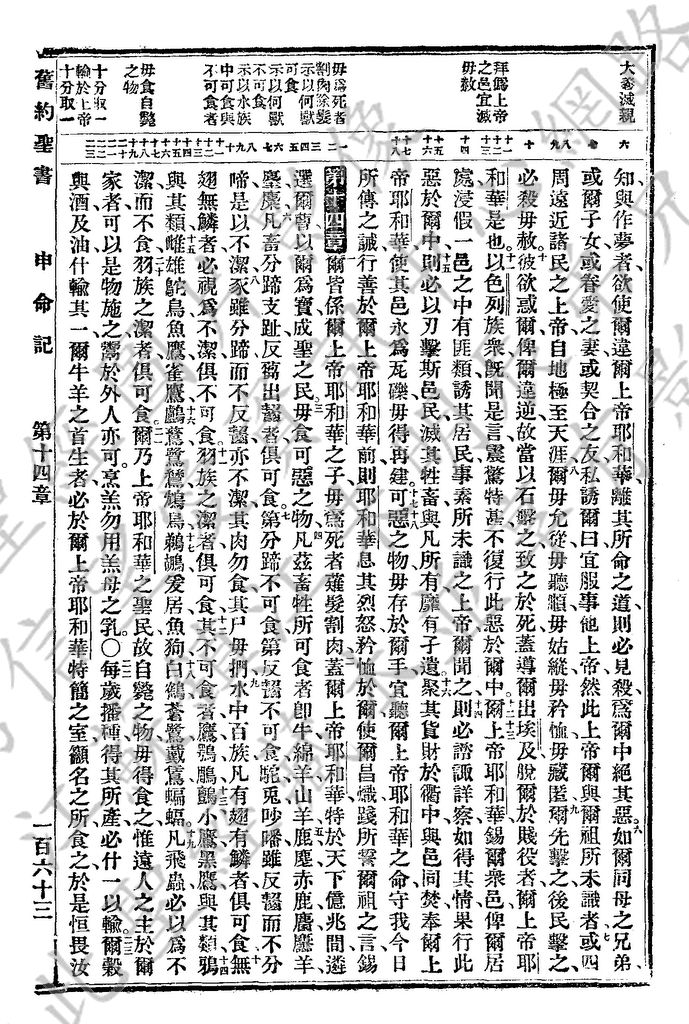 大衆滅親
拜僞上帝
之邑宜滅
毋赦
毋爲死者
割肉除髮
示以何獸
可食
示以何獸
不可食
示以水族
中可食與
不可食者
毋食自斃
之物
十分取一
輸於上帝
十分取一
知與作夢者欲使爾違爾上帝耶和華離其所命之道則必見殺爲爾中絕其惡如爾同母之兄弟
或爾子女或眷愛之妻或契合之友私誘爾曰宜服事他上帝然此上帝爾與爾祖所未識者或四
周遠近諸民之上帝自地極至天涯爾毋允從毋聽順毋姑縱毋矜恤毋藏匿爾先擊之後民擊之
必殺毋赦彼欲惑爾俾爾違逆故當以石擊之致之於死蓋導爾出埃及脫爾於賤役者爾上帝耶
和華是也以色列族衆旣聞是言震驚特甚不復行此惡於爾中爾上帝耶和華錫爾衆邑俾爾居
處浸假一邑之中有匪類誘其居民事素所未識之上帝爾聞之則必諮諏詳察如得其情果行此
惡於爾中則必以刃擊斯邑民滅其牲畜與凡所有靡有孑遺聚其貨財於衢中與邑同焚奉爾上
帝耶和華使其邑永爲瓦礫毋得再建可惡之物毋存於爾手宜聽爾上帝耶和華之命守我今日
所傳之誡行善於爾上帝耶和華前則耶和華息其烈怒矜恤於爾使爾昌熾踐所誓爾祖之言錫
第十四章爾皆係爾上帝耶和華之子毋爲死者薙髮割肉蓋爾上帝耶和華特於天下億兆間遴
選爾曹以爾爲寶成聖之民毋食可惡之物凡茲畜牲所可食者卽牛綿羊山羊鹿麈赤鹿麢麢羊
麈麋凡畜分蹄支趾反芻出齝者俱可食第分蹄不可食第反齝而不可食駝兎吵噃雖反芻而不分
蹄是以不潔豕雖分蹄而不反齝亦不潔其肉勿食其尸毋捫水中百族凡有翅有鱗者俱可食無
翅無鱗者必視爲不潔俱不可食羽族之潔者俱可食其不可食者鷹鶚鵰鸇小鷹黑鷹與其類鴉
與其類雌雄鴕鳥魚鷹雀鷹鸕鶿鷺鷥鵂鳥鵜鶘爰居魚狗白鶴蒼鷺戴鵀蝙蝠凡飛蟲必以爲不
潔而不食羽族之潔者俱可食爾乃上帝耶和華之聖民故自斃之物毋得食之惟遠人之主於爾
家者可以是物施之鬻於外人亦可烹羔勿用羔母之乳〇每歲播種得其所產必什一以輸爾穀
與酒及油什輸其一爾牛羊之首生者必於爾上帝耶和華特簡之室籲名之所食之於是恒畏汝
舊約聖書 申命記 第十四章 一百六十三